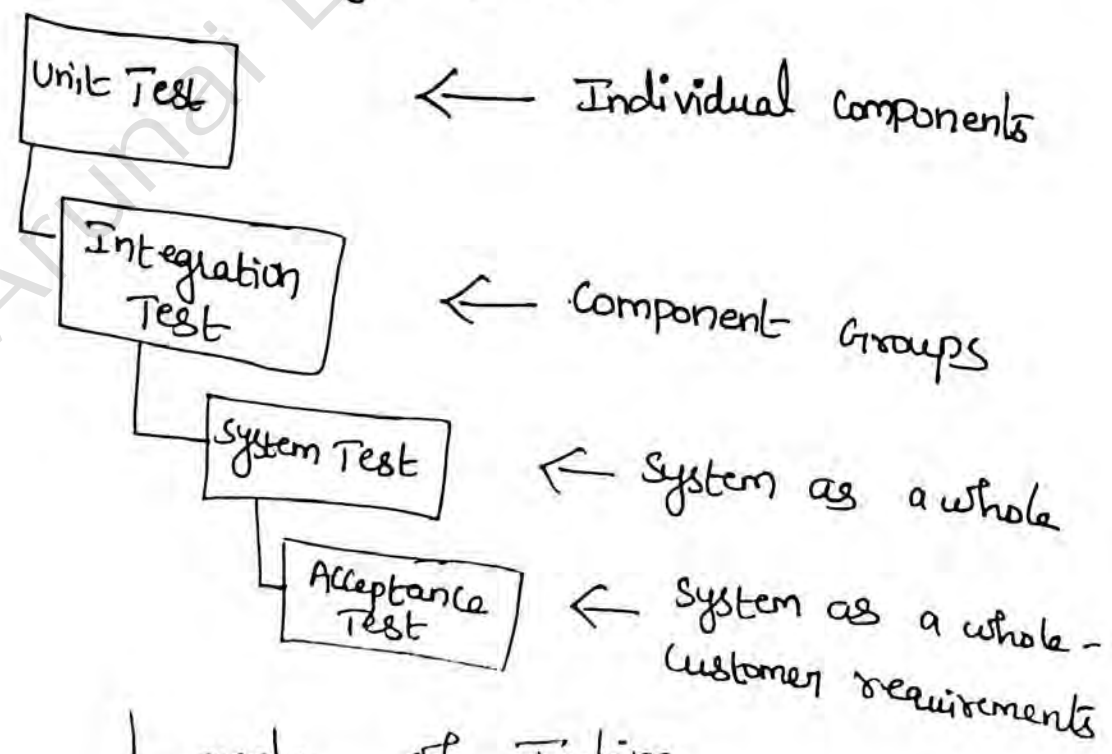 Unit Test
← Individual components
Integration
Test
← Component Groups
System Test
← System as a whole
Acceptance
Test
← System as a whole -
Customer requirements
of
Arunai